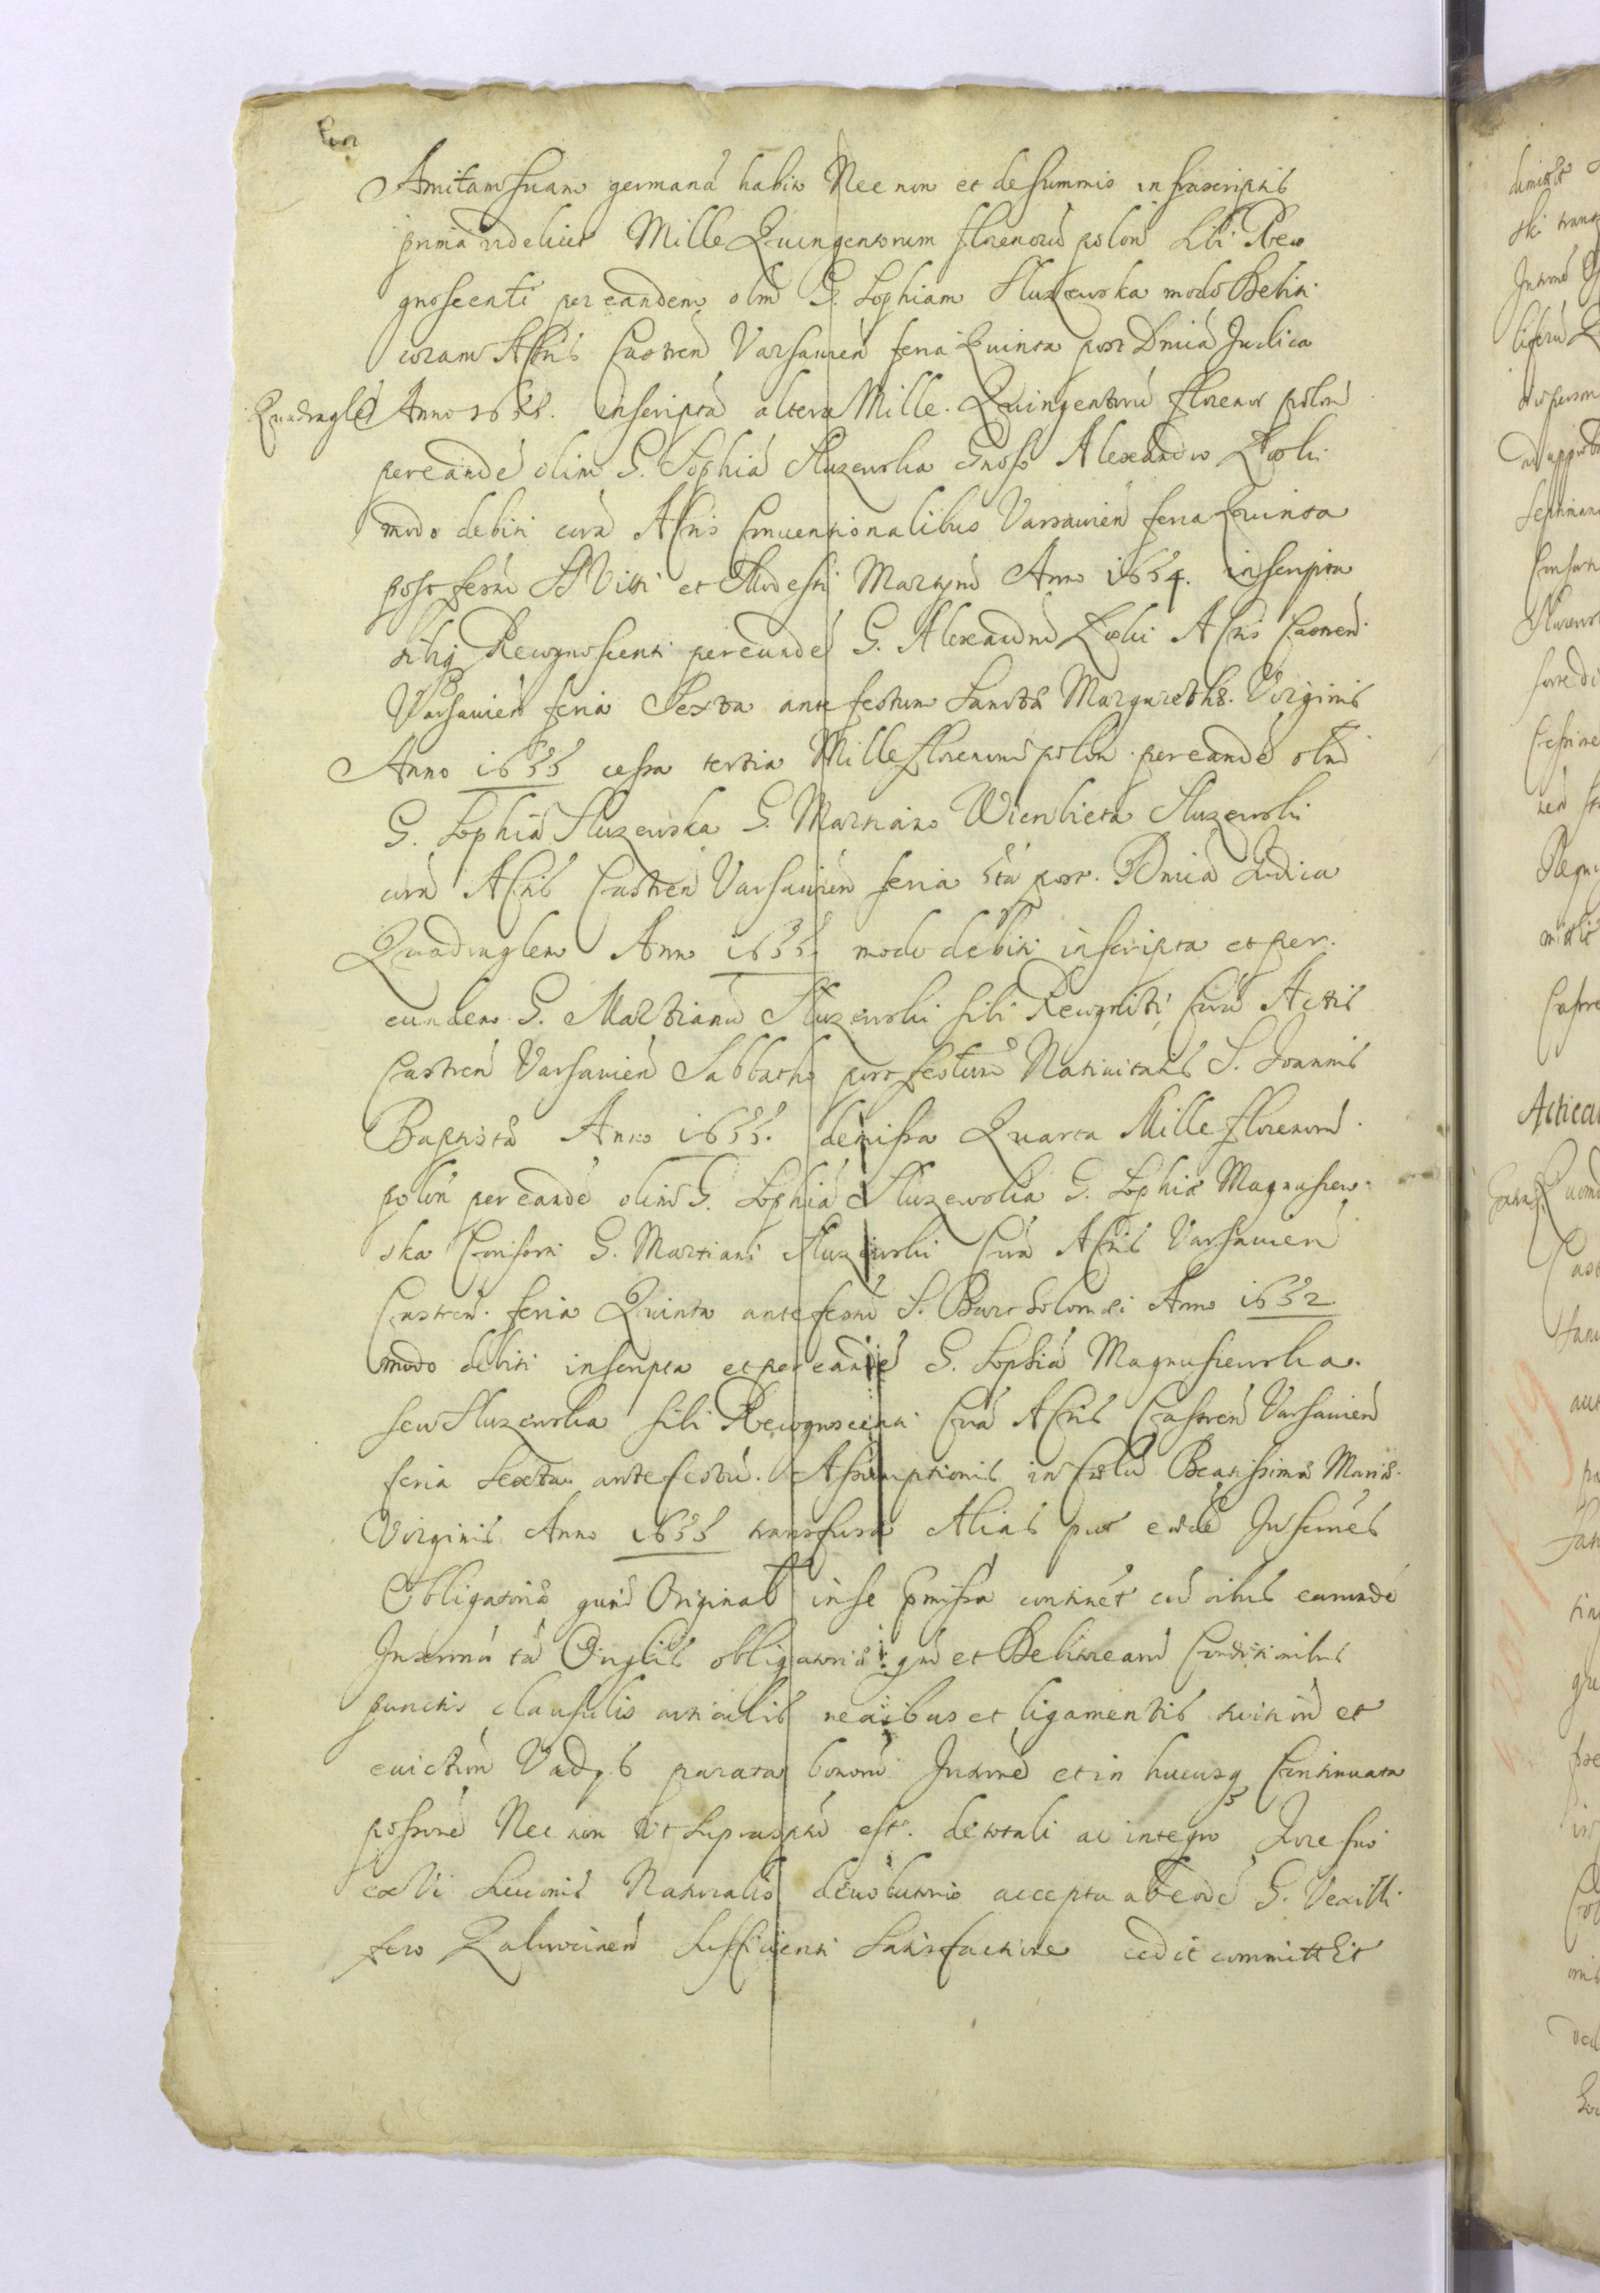 Amitam suam germaná habit Nec non et de summis infrascriptis
primá videlicet Mille Quingentorum florenorú polon sibi Reco
gnoscenti per eandem olim G. Sophiam Sluzewska modo Debiti
coram Actis Castren Varsavien feria Quinta post Dnicá Judica
Quadragles Anno 1655. inscriptá altera Mille Quingentorú florenor polon
per eandé olim G. Sophiá Sluzewska Gnoso Alexandro
modo debiti corá Actis Conventionalibus Varsavien feria Quinta
post festú SS Viti et Modesti Martyrú Anno 1654. inscripta
sibiq Recognoscenti per eundé G. Alexandrú Actis Castren
Varsavien feria Sexta ante festum Sanctæ Margarethæ Virginis
Anno 1655 cessa tertia Mille florenorú polon per eandé olim
G. Sophiá Sluzewska G. Martiano Sluzewski
corá Actis Castren Varsavien feria 5ta post Dnicá Judica
Quadraglem Anno 1655 modo debiti inscripta et per
eundem G. Martianú Sluzewski sibi Recognti Corá Actis
Castren Varsavien Sabbatho post festum Nativitatis S. Joannis
Baptistæ Anno 1655. demissa Quarta Mille florenorú
polon per eandé olim G. Sophiá Sluzewska G. Sophiæ Magnusiew
ska Consorti G. Martiani Sluzewski Corá Actis Varsavien
Castren feria Quinta ante festú S. Bartholomæi Anno 1652
modo debiti inscripta et per eandé G. Sophiá Magnusiewska
seu Sluzewska sibi Recognoscenti Corá Actis Castren Varsavien
feria Sexta ante festú Assumptionis in Cælú Beatissimæ Mariæ
Virginis Anno 1655 transfusa Alias put eædé Inscrnes
Obligatoriæ quarú Original in se præmissa continét cú oibus earundé
Inscrnú tá Oniglis obligatoriæ qm et Debitorearú Conditionibus
punctis clausulis articulis nexibus et ligamentis tuitioné et
evictioné Vadys parata bonorú Intromé et in hucusq Continuata
possoné Nec non Ut suprasptú est de totali ac integro Jure suo
ex Vi Sucсonis Naturalis devolutorio accepta ab eodé G. Vexilli
fero Zakrocimen Sufficienti Satisfactione cedit committit